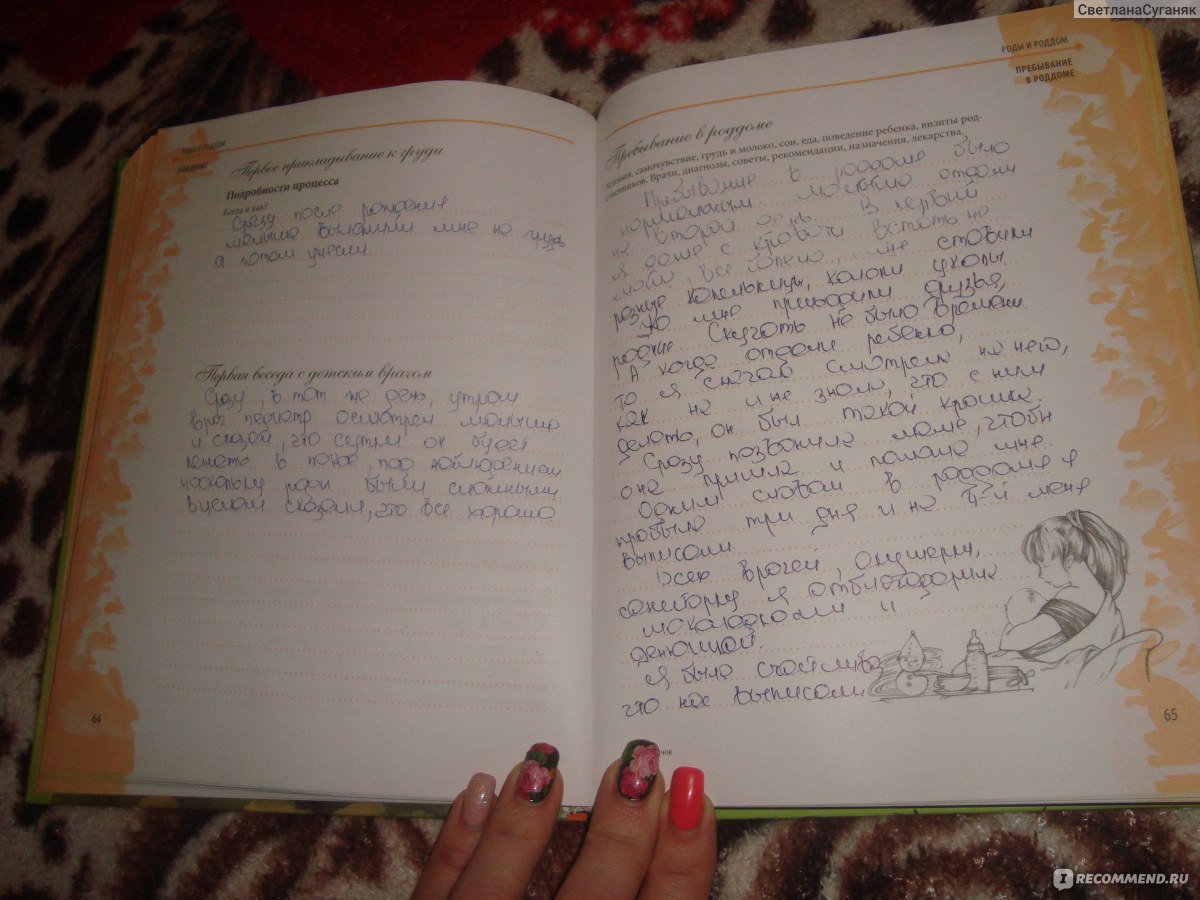 СветланаСуганяк
РОДЫ И РОДДОМ
РОЖДЕНИЕ
Первое прикладывание к груди
Подробности процесса
Когда и как?
Сразу после рождения
малыша выложили мне на грудь
а потом унесли.
Первая беседа с детским врачом
Сразу, в тот же день, утром
врач педиатр осмотрел малыша
и сказал, что сутки он будет
лежать в покое, под наблюдением
поскольку роды были сложными
в целом сказали, что все хорошо
64
РОДЫ И РОДДОМ
ПРЕБЫВАНИЕ
В РОДДОМЕ
Пребывание в роддоме
Условия, самочувствие, грудь и молоко, сон, еда, поведение ребенка, визиты род-
ственников. Врачи, диагнозы, советы, рекомендации, назначения, лекарства.
Пребывание в роддоме было
нормальным малыша отдали
на второй день. В первый
я даже с кровати встать не
могла, все болело, мне ставили
разные капельницы, кололи уколы.
Ко мне приходили друзья,
родные. Скучать не было времени.
А когда отдали ребенка,
то я сначала смотрела на него,
как на и не знала, что с ним
делать, он был такой крошка.
Сразу позвонила маме, чтобы
она пришла и помогла мне.
Одним словом в роддоме я
пробыла три дня и на 4-й меня
выписали.
Всех врачей, акушерку,
санитарку я отблагодарила
шоколадками и
денюшкой.
Я была счастлива,
что нас выписали
65
чок
IRECOMMEND.RU